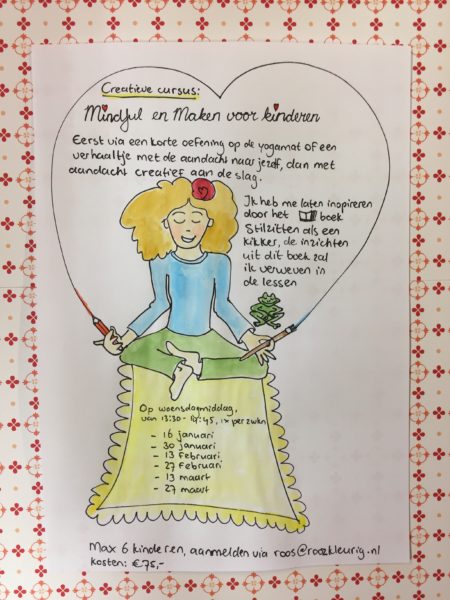 Creatieve cursus:
Mindful en Maken voor kinderen
Eerst via een korte oefening op de yogamat of een
verhaaltje met de aandacht naar jezelf, dan met
aandacht creatief aan de slag.
Ik heb me laten inspireren
door het boek
Stilzitten als een
kikker, de inzichten
uit dit boek zal
ik verweven in
de lessen
Op woensdagmiddag,
van 13:30 - :45, 1x per 2 wkn
- 16 januari
- 30 januari
- 13 februari
- 27 februari
- 13 maart
- 27 maart
Max 6 kinderen, aanmelden via roos@roozkleurig.nl
kosten: €75,-